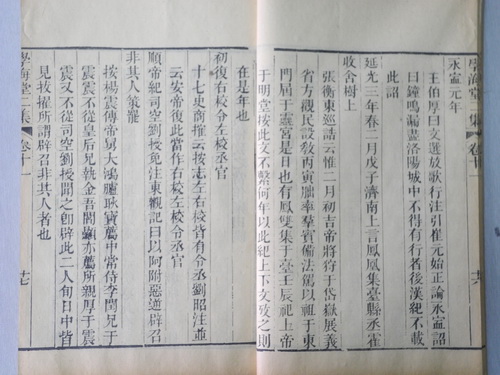 學海堂二集 卷十一 共
永寍元年
王伯厚曰文選放歌行注引崔元始正論永寍詔
曰鐘鳴漏盡洛陽城中不得有行者後漢紀不載
此詔
延光三年春二月戊子濟南上言鳳凰集臺縣丞霍
收舍樹上
張衡東巡誥云惟二月初吉帝將狩于岱嶽展義
省方觀民設敎丙寅朏率羣賓備法駕以祖于東
門屆于靈宮是日也有鳳雙集于臺壬辰祀上帝
于明堂按此文不繫何年以此紀上下文攷之則
在是年也
初復右校令左校丞官
十七史商榷云按志左右校皆有令丞劉昭注並
云安帝復此當作右校左校令丞官
順帝紀司空劉授免注東觀記曰以阿附惡逆辟召
非其人策罷
按楊震傳帝舅大鴻臚耿寶薦中常侍李閏兄于
震震不從皇后兄執金吾閻顯亦薦所親厚于震
震又不從司空劉授聞之卽辟此二人旬日中皆
見拔擢所謂辟召非其人者也
學海堂二集 卷十一